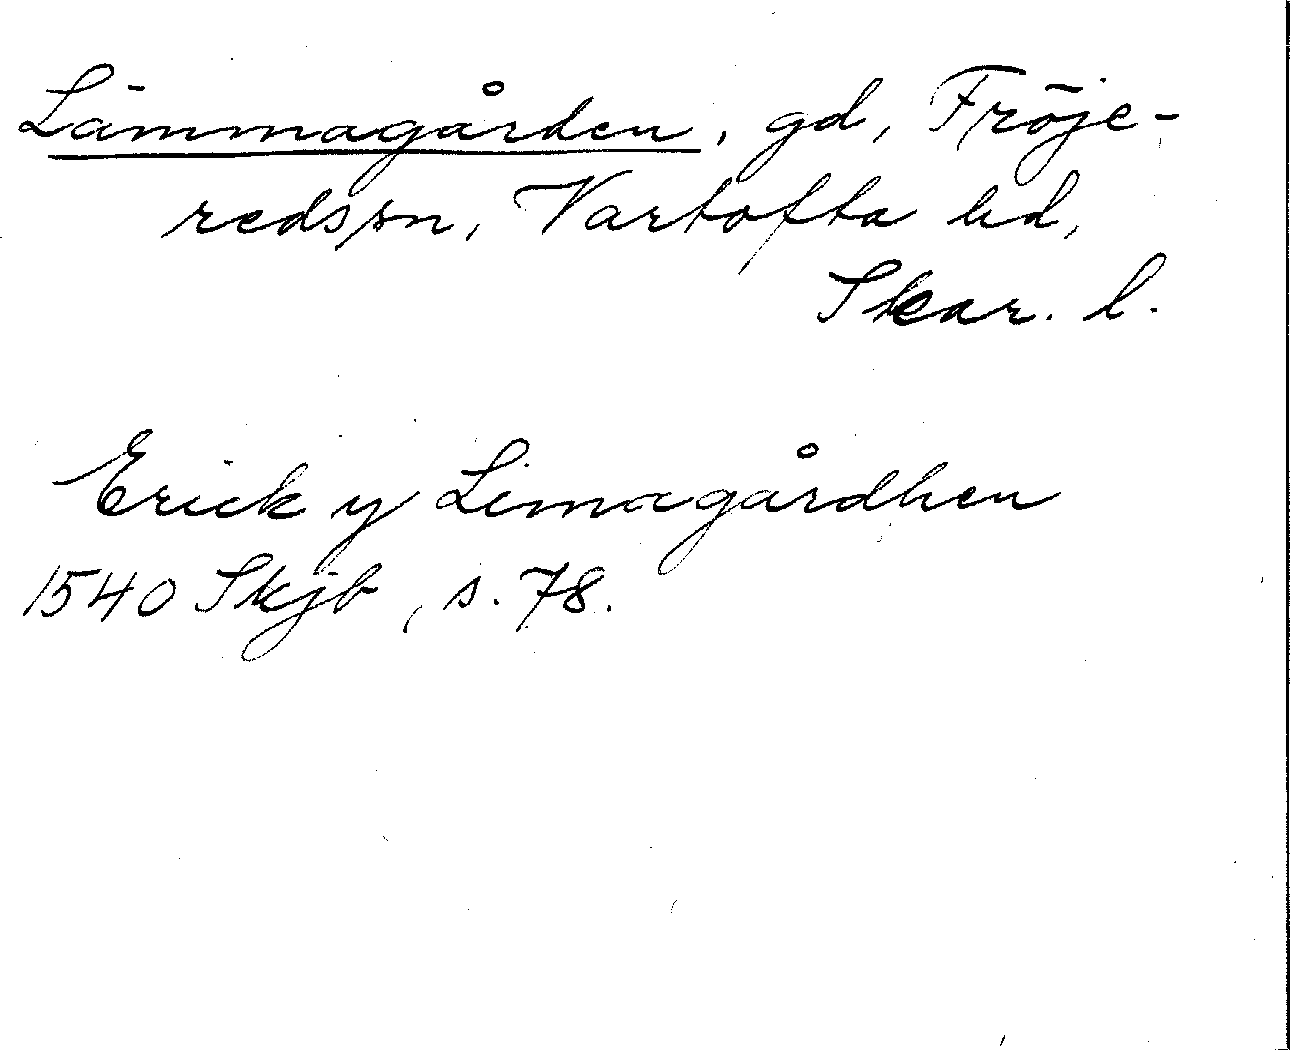 Lämmagården, gd, Fröje-
reds sn, Vartofta hd,
Skar. l.
Erick y Limagårdhen
1540 Skjb, s. 78.